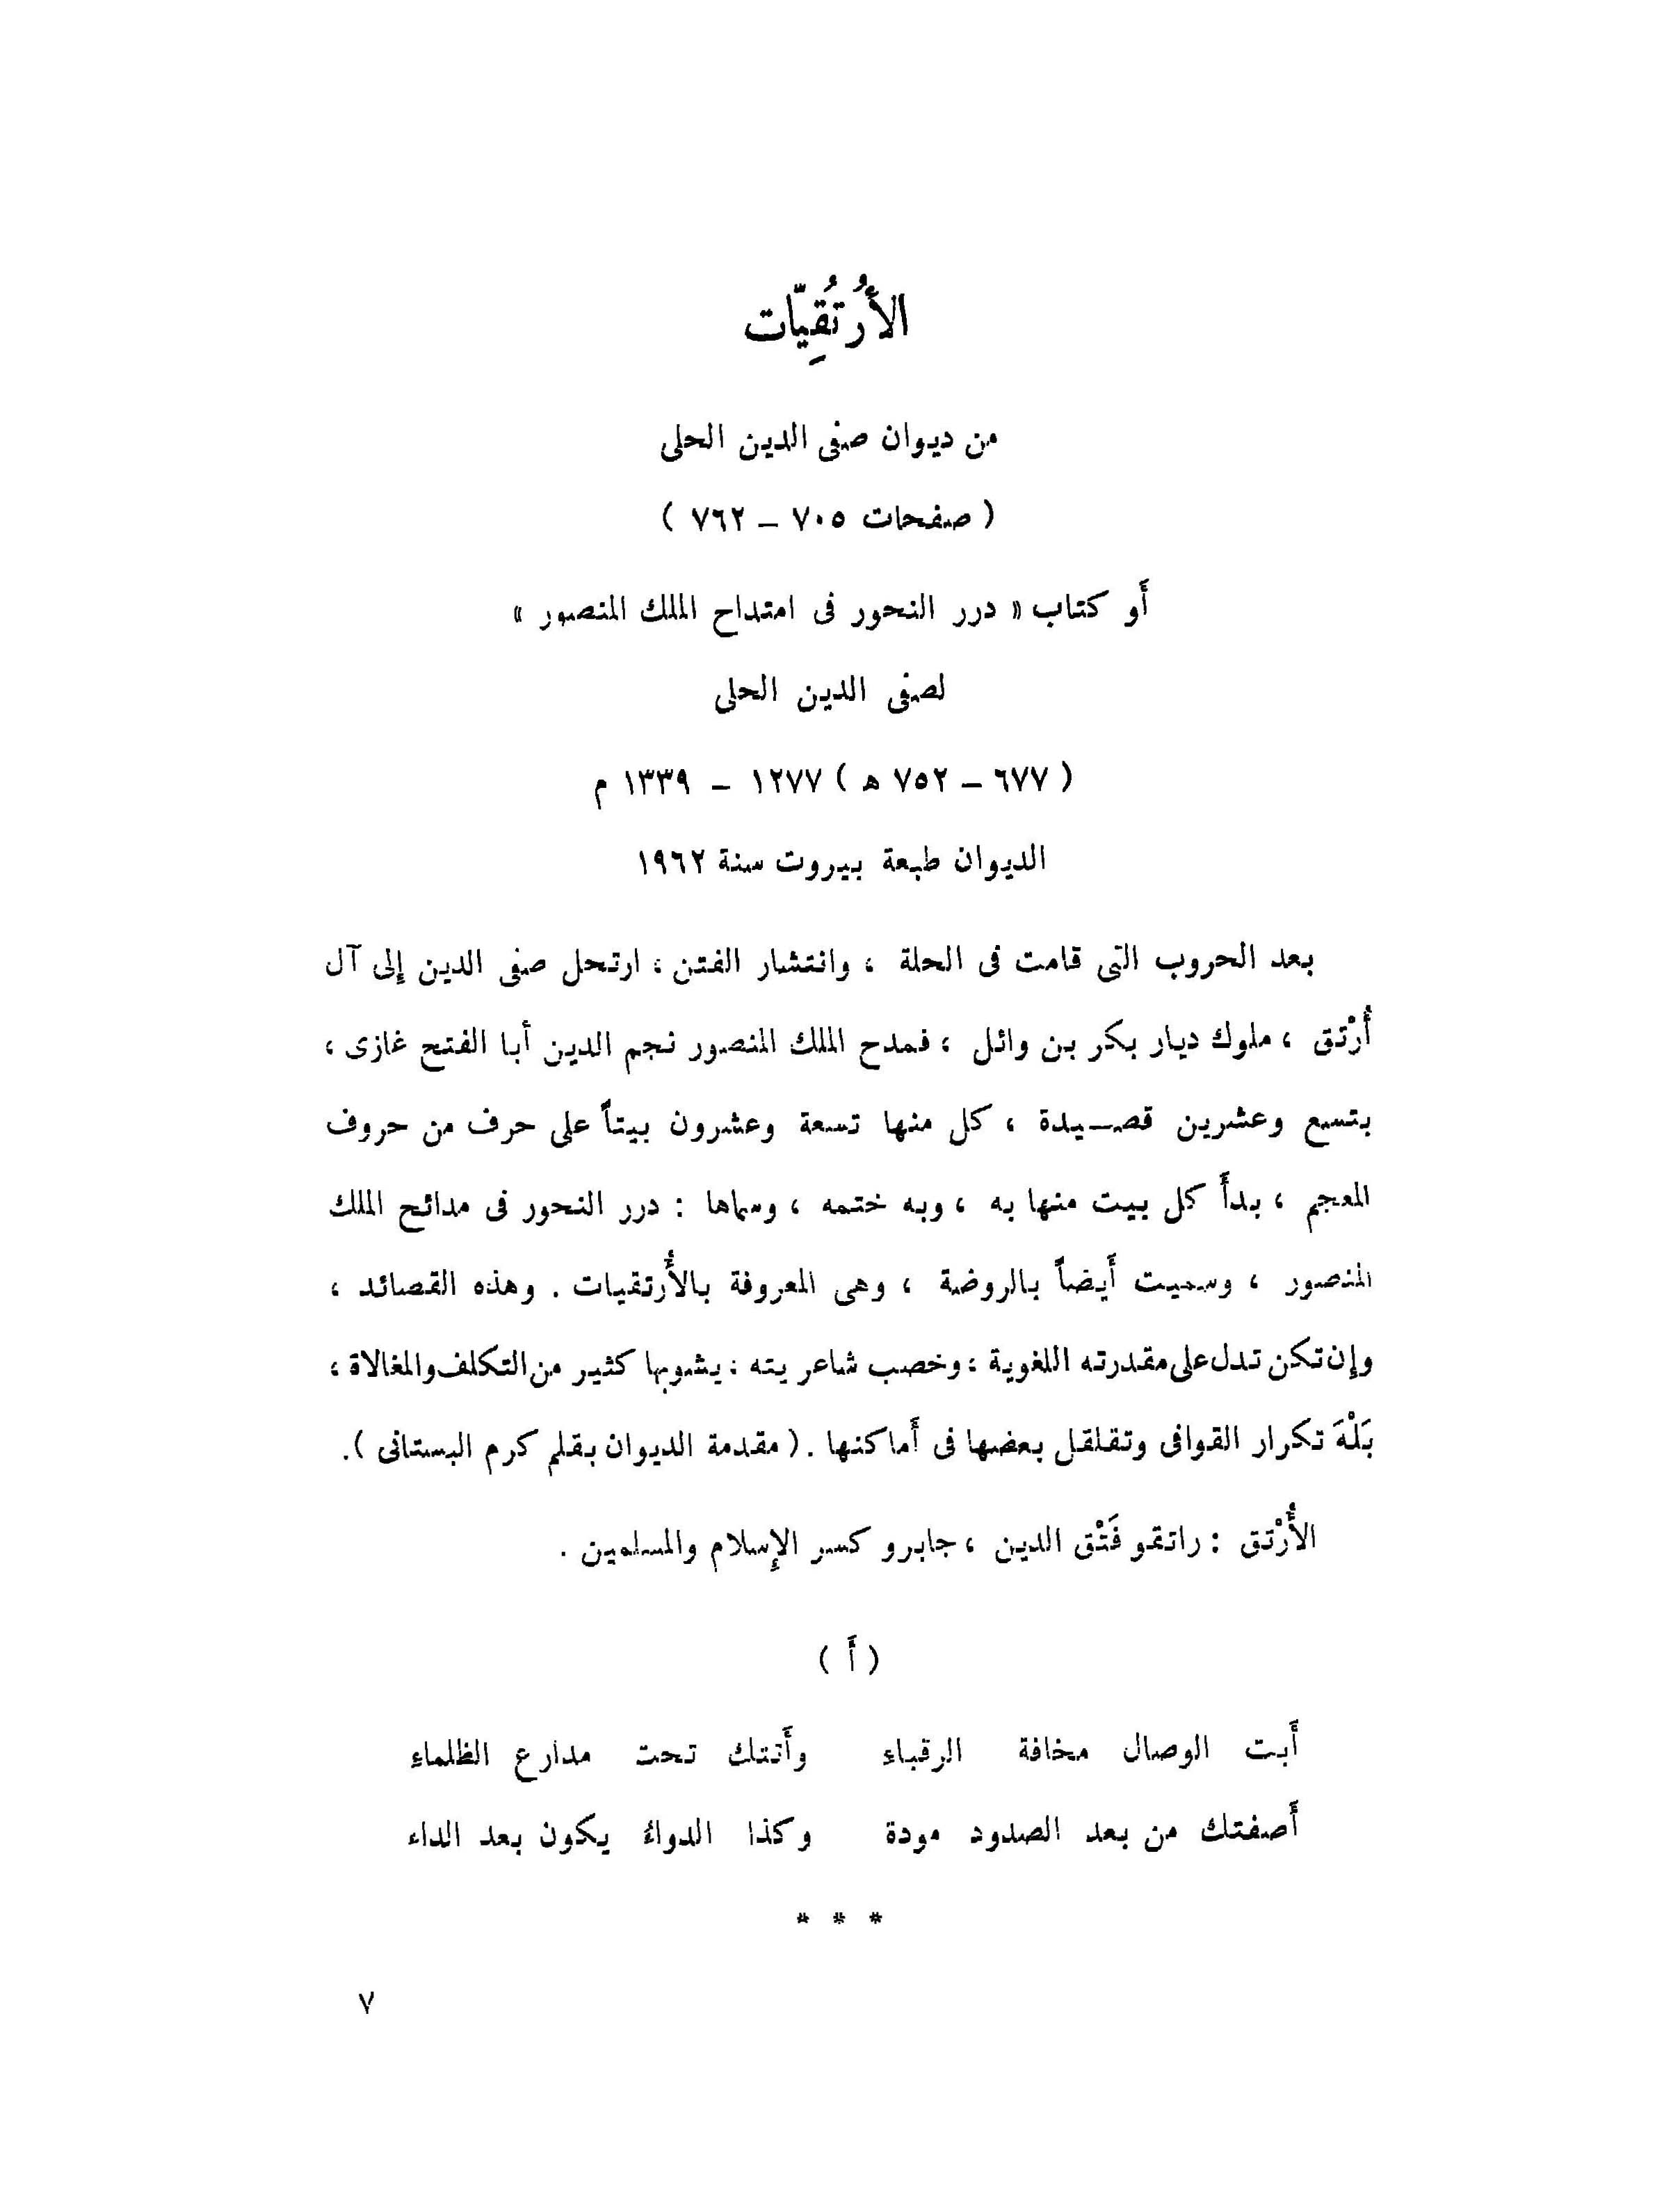 الأُرتُقِيّات
من ديوان صفى الدين الحلى
( صفحات ٧٠٥ – ٧٦٢ )
أَو كتاب « درر النحور فى امتداح الملك المنصور »
لصفى الدين الحلى
( ٦٧٧ – ٧٥٢ ه ) ١٢٧٧ – ١٣٣٩ م
الديوان طبعة بيروت سنة ١٩٦٢
بعد الحروب التى قامت فى الحلة ، وانتشار الفتن ، ارتحل صفى الدين إلى آل
أُرْتق ، ملوك ديار بكر بن وائل ، فمدح الملك المنصور نجم الدين أبا الفتح غازى ،
بتسع وعشرين قصــيدة ، كل منها تسعة وعشرون بيتاً على حرف من حروف
المعجم ، بدأَ كل بيت منها به ، وبه ختمه ، وسماها : درر النحور فى مدائح الملك
المنصور ، وسميت أَيضاً بالروضة ، وهى المعروفة بالأُرتقيات . وهذه القصائد ،
وإن تكن تدل على مقدرته اللغوية ، وخصب شاعريته ، يشوبها كثير من التكلف والمغالاة ،
بَلْهَ تكرار القوافى وتقلقل بعضها فى أَماكنها . ( مقدمة الديوان بقلم كرم البستانى ) .
الأُرْتق : راتقو فَتْق الدين ، جابرو كسر الإسلام والمسلمين .
( أَ )
أَبت الوصال مخافة الرقباء وأَتتك تحت مدارع الظلماء
أَصفتك من بعد الصدود مودة وكذا الدواءُ يكون بعد الداء
* * *
٧